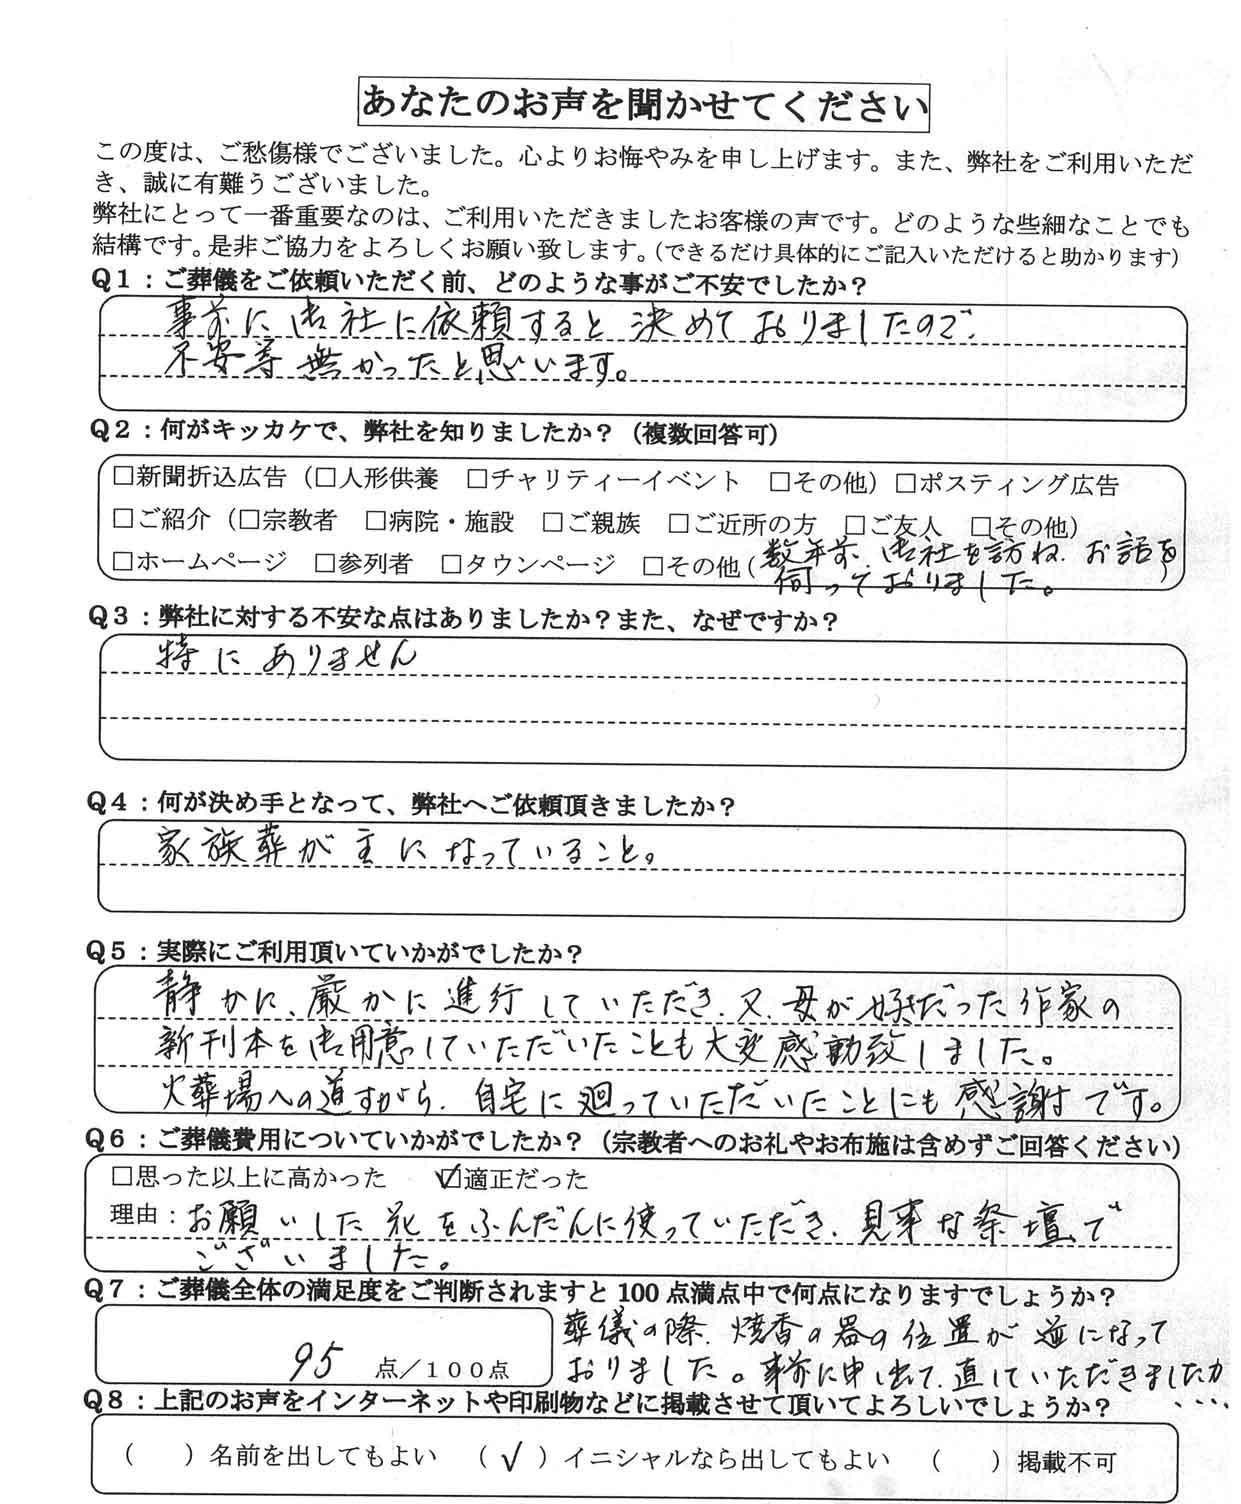 あなたのお声を聞かせてください
この度は、ご愁傷様でございました。心よりお悔やみを申し上げます。また、弊社をご利用いただ
き、誠に有難うございました。
弊社にとって一番重要なのは、ご利用いただきましたお客様の声です。どのような些細なことでも
結構です。是非ご協力をよろしくお願い致します。（できるだけ具体的にご記入いただけると助かります）
Q1：ご葬儀をご依頼いただく前、どのような事がご不安でしたか？
事前に御社に依頼すると決めておりましたので、
不安等無かったと思います。
Q2：何がキッカケで、弊社を知りましたか？（複数回答可）
□新聞折込広告（□人形供養　□チャリティーイベント　□その他）□ポスティング広告
□ご紹介（□宗教者　□病院・施設　□ご親族　□ご近所の方　□ご友人　□その他）
□ホームページ　□参列者　□タウンページ　□その他（数年前、御社を訪ね、お話を）
伺っておりました。
Q3：弊社に対する不安な点はありましたか？また、なぜですか？
特にありません
Q4：何が決め手となって、弊社へご依頼頂きましたか？
家族葬が主になっていること。
Q5：実際にご利用頂いていかがでしたか？
静かに、厳かに進行していただき、又、母が好きだった作家の
新刊本を御用意していただいたことも大変感動致しました。
火葬場への道すがら、自宅に廻っていただいたことにも感謝です。
Q6：ご葬儀費用についていかがでしたか？（宗教者へのお礼やお布施は含めずご回答ください）
□思った以上に高かった　☑適正だった
理由：お願いした花をふんだんに使っていただき、見事な祭壇で
ございました。
Q7：ご葬儀全体の満足度をご判断されますと100点満点中で何点になりますでしょうか？
95 点／100点
葬儀の際、焼香の器の位置が逆になって
おりました。事前に申し出て、直していただきましたが
・・・・
Q8：上記のお声をインターネットや印刷物などに掲載させて頂いてよろしいでしょうか？
（　）名前を出してもよい　（✓）イニシャルなら出してもよい　（　）掲載不可